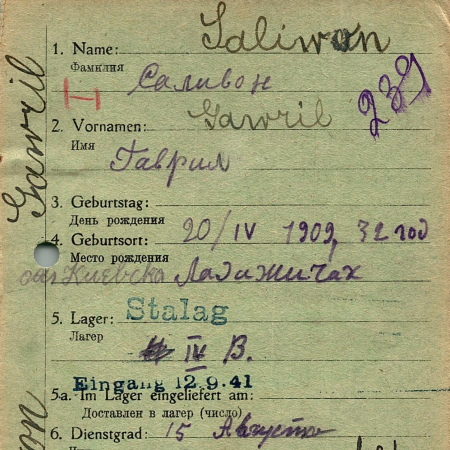 1. Name: Saliwon
Фамилия
Саливон
239
H
2. Vornamen: Gawril
Имя
Гаврил
Gawril
3. Geburtstag:
День рождения
4. Geburtsort: 20/IV 1909, 32 год
Место рождения
Киевска Ладижичах
5. Lager: Stalag
Лагер
IV B.
Eingang 12.9.41
5a. Im Lager eingeliefert am:
Доставлен в лагер (число)
6. Dienstgrad: 15 Августа